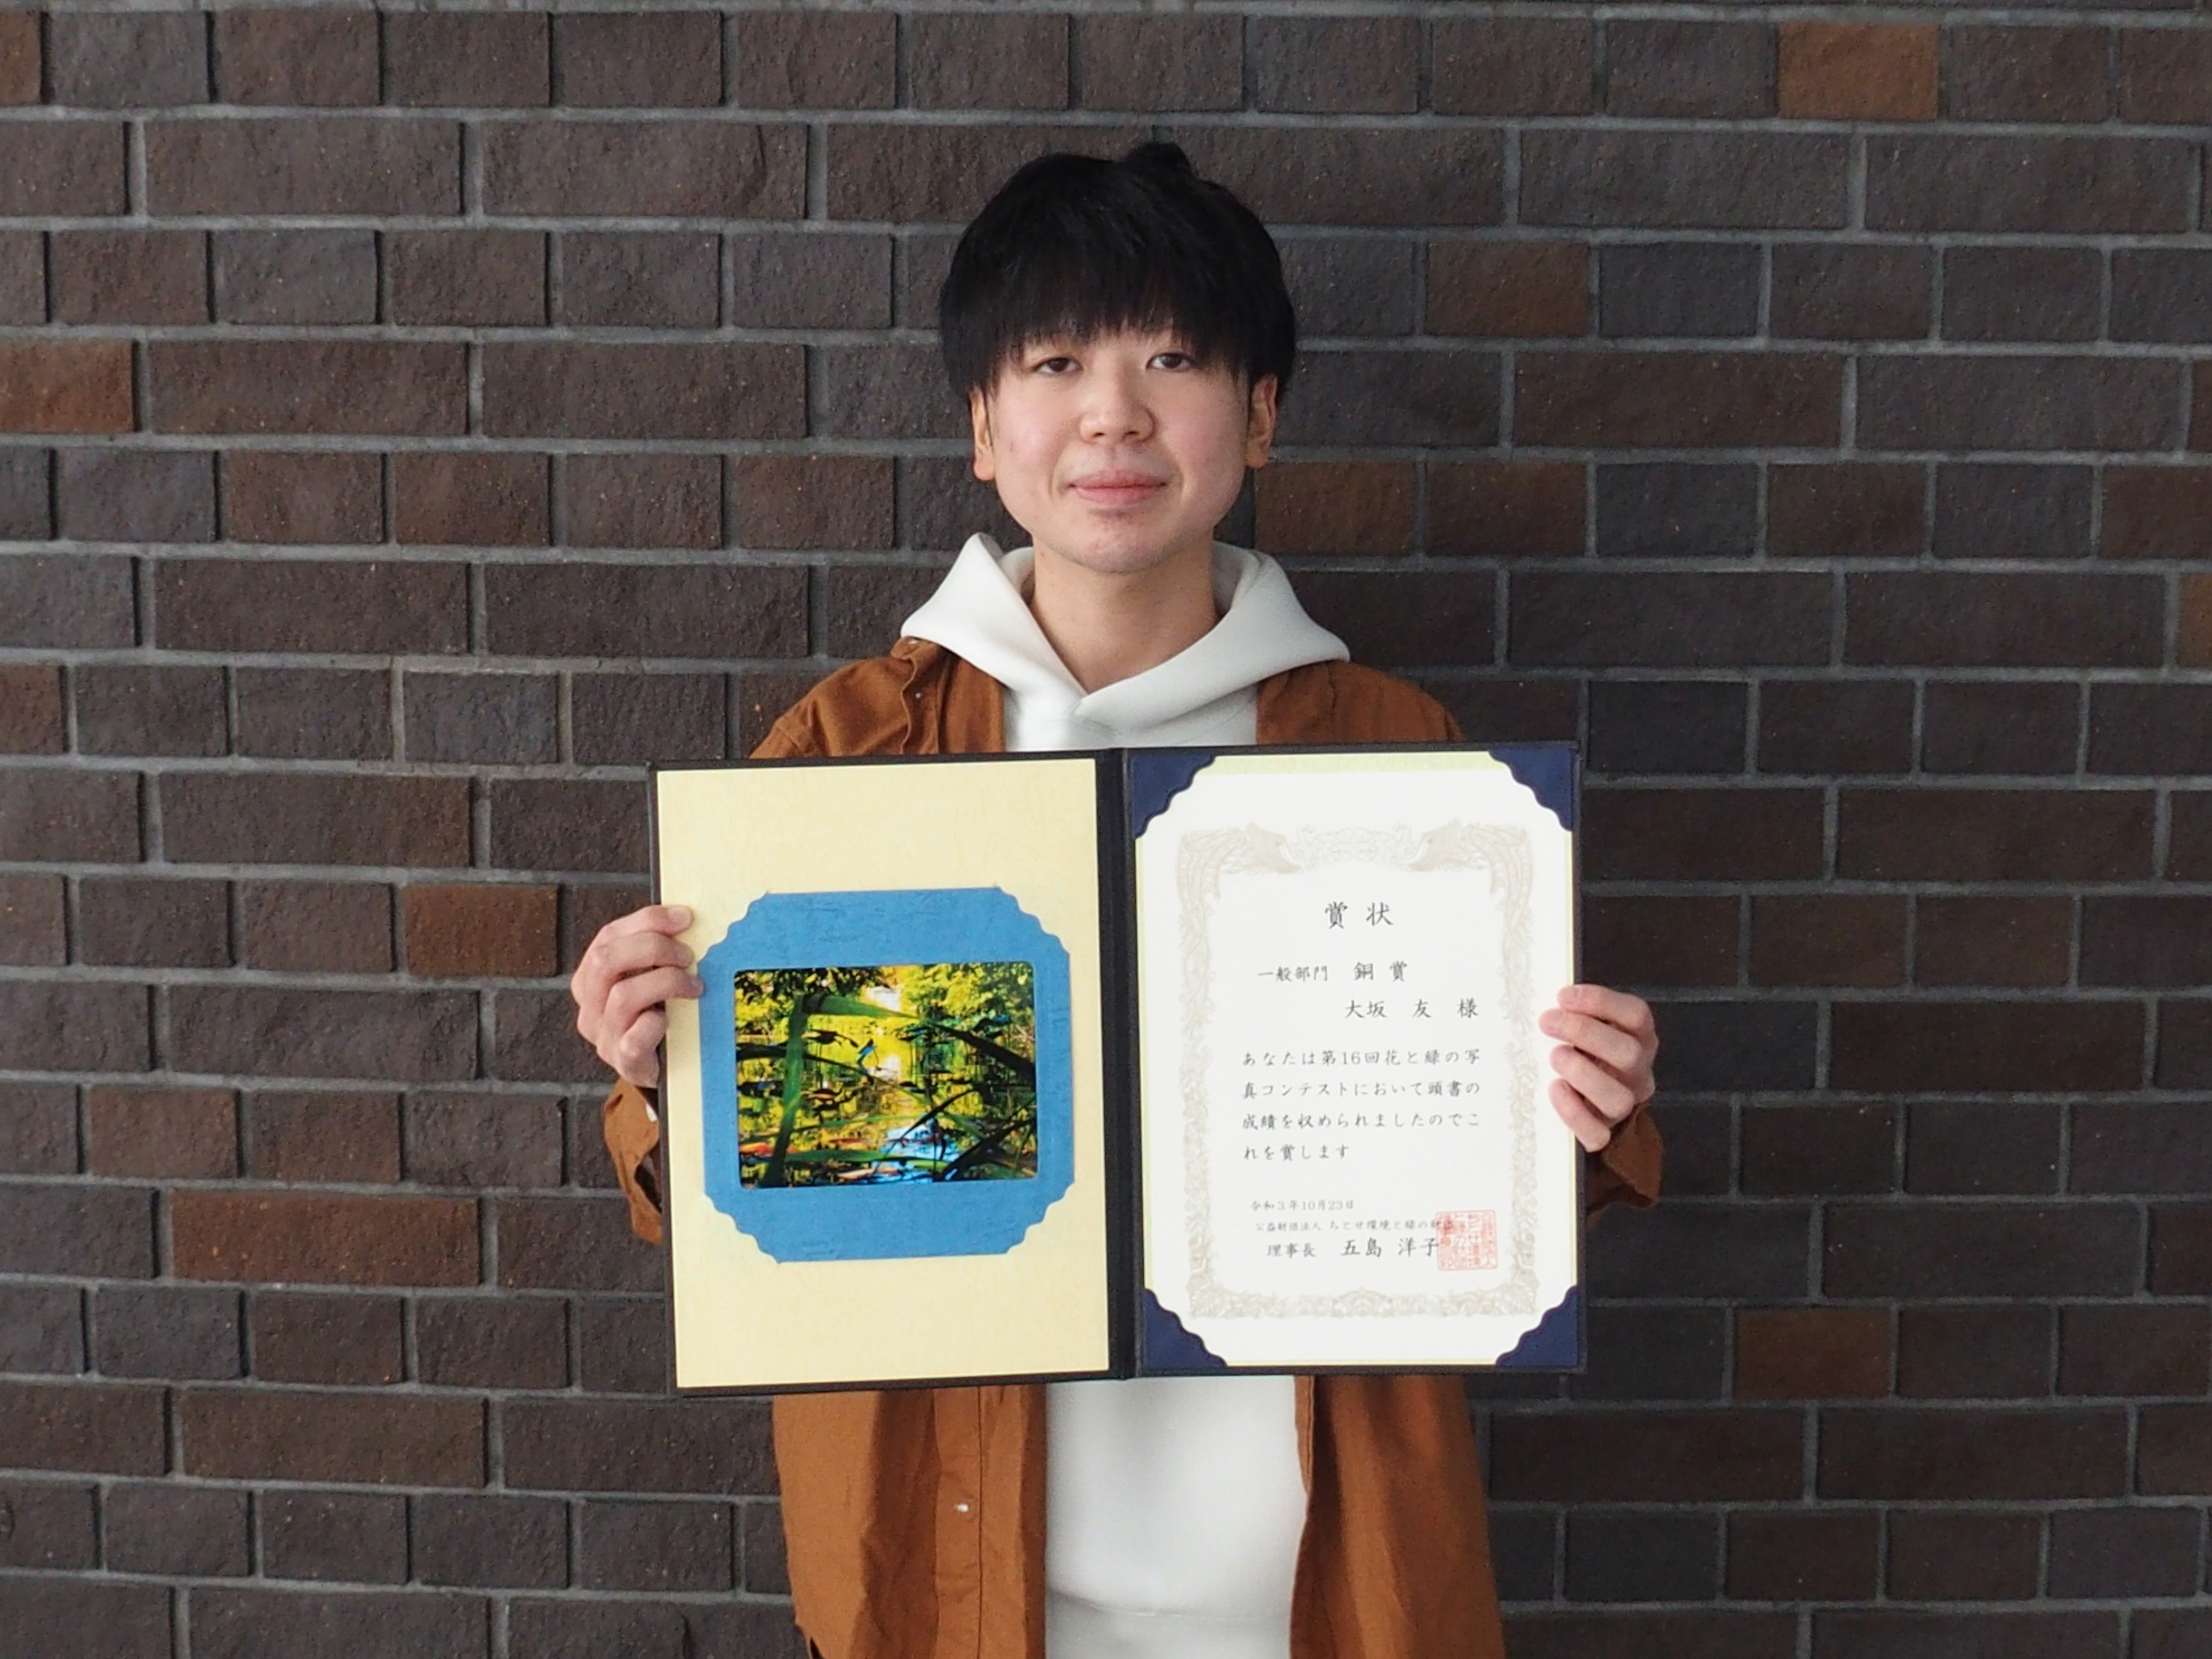 賞状
一般部門 銅賞
大坂 友 様
あなたは第16回花と緑の写
真コンテストにおいて頭書の
成績を収められましたのでこ
れを賞します
令和3年10月23日
公益財団法人 ちとせ環境と緑の財団
理事長 五島 洋子